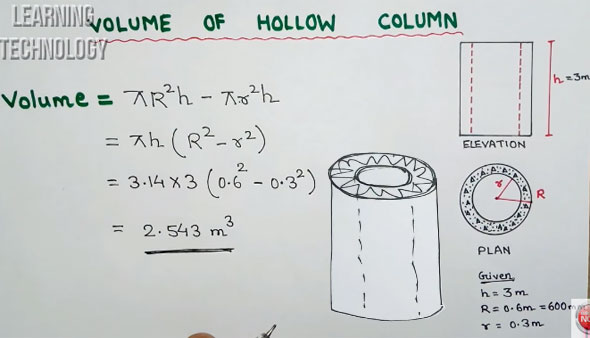 LEARNING
TECHNOLOGY
VOLUME OF HOLLOW COLUMN
Volume = πR²h - πr²h
= πh (R² - r²)
= 3.14 × 3 (0.6² - 0.3²)
= 2.543 m³
h = 3m
ELEVATION
r
R
PLAN
Given
h = 3m
R = 0.6m = 600mm
r = 0.3m